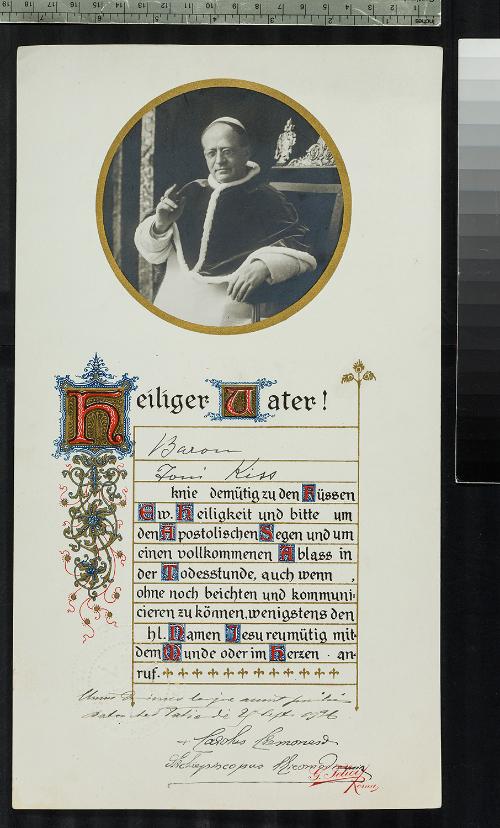 Heiliger Vater!
Baron
Toni Kiss
knie demütig zu den Füssen
Ew. Heiligkeit und bitte um
den Apostolischen Segen und um
einen vollkommenen Ablass in
der Todesstunde, auch wenn ,
ohne noch beichten und kommuni-
cieren zu können, wenigstens den
hl. Namen Jesu reumütig mit
dem Munde oder im Herzen an-
ruf.
1926
+ Carolus
Archiepiscopus
Roma